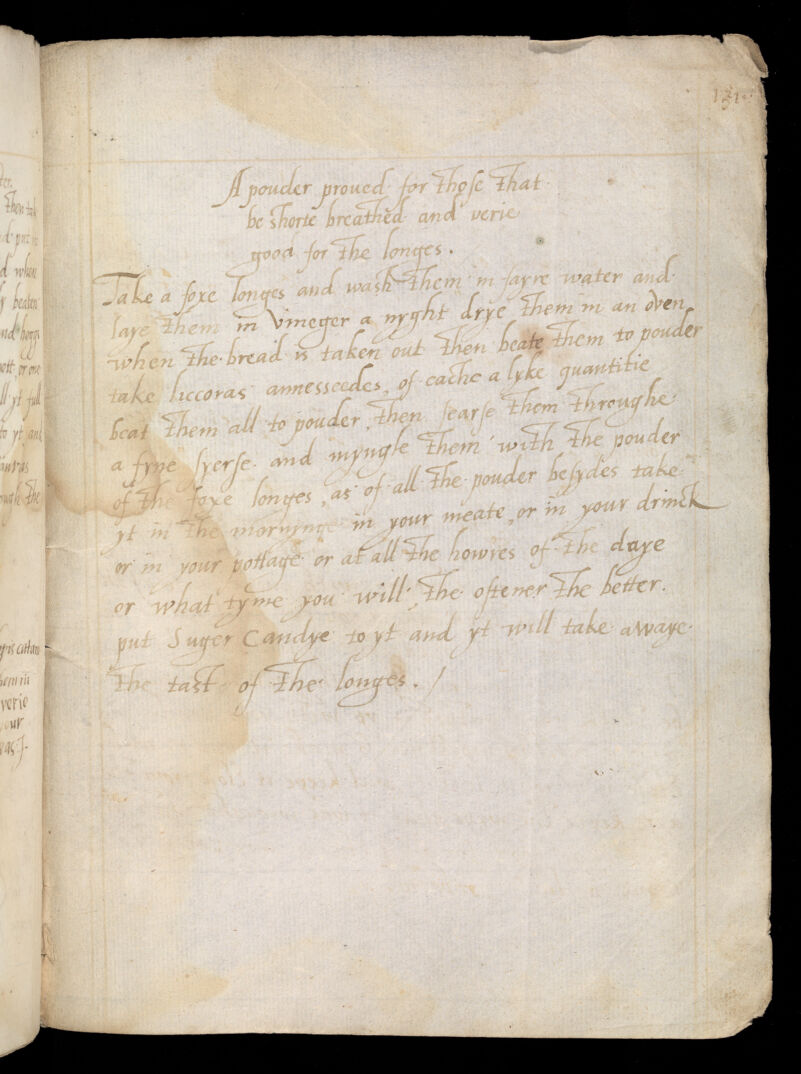 131.
A pouder proued for those that
be shorte breathed and verie
good for the longes.
Take a foxe longes and wash them in fayre water and
laye them in vineger a nyght drye them in an oven
when the bread is taken out then beate them to pouder
take liccoras annesseedes, of eache a lyke quantitie
beat them all to pouder, then searse them throughe
a fyne syerse and myngle them with the pouder
of the foxe longes, as of all the pouder besydes take
yt in the mornynge in your meate, or in your drinck
or in your pottage or at all the howres of the daye
or what tyme you will, the oftener the better.
put Suger Candye to yt and yt will take awaye
the tast of the longes. /